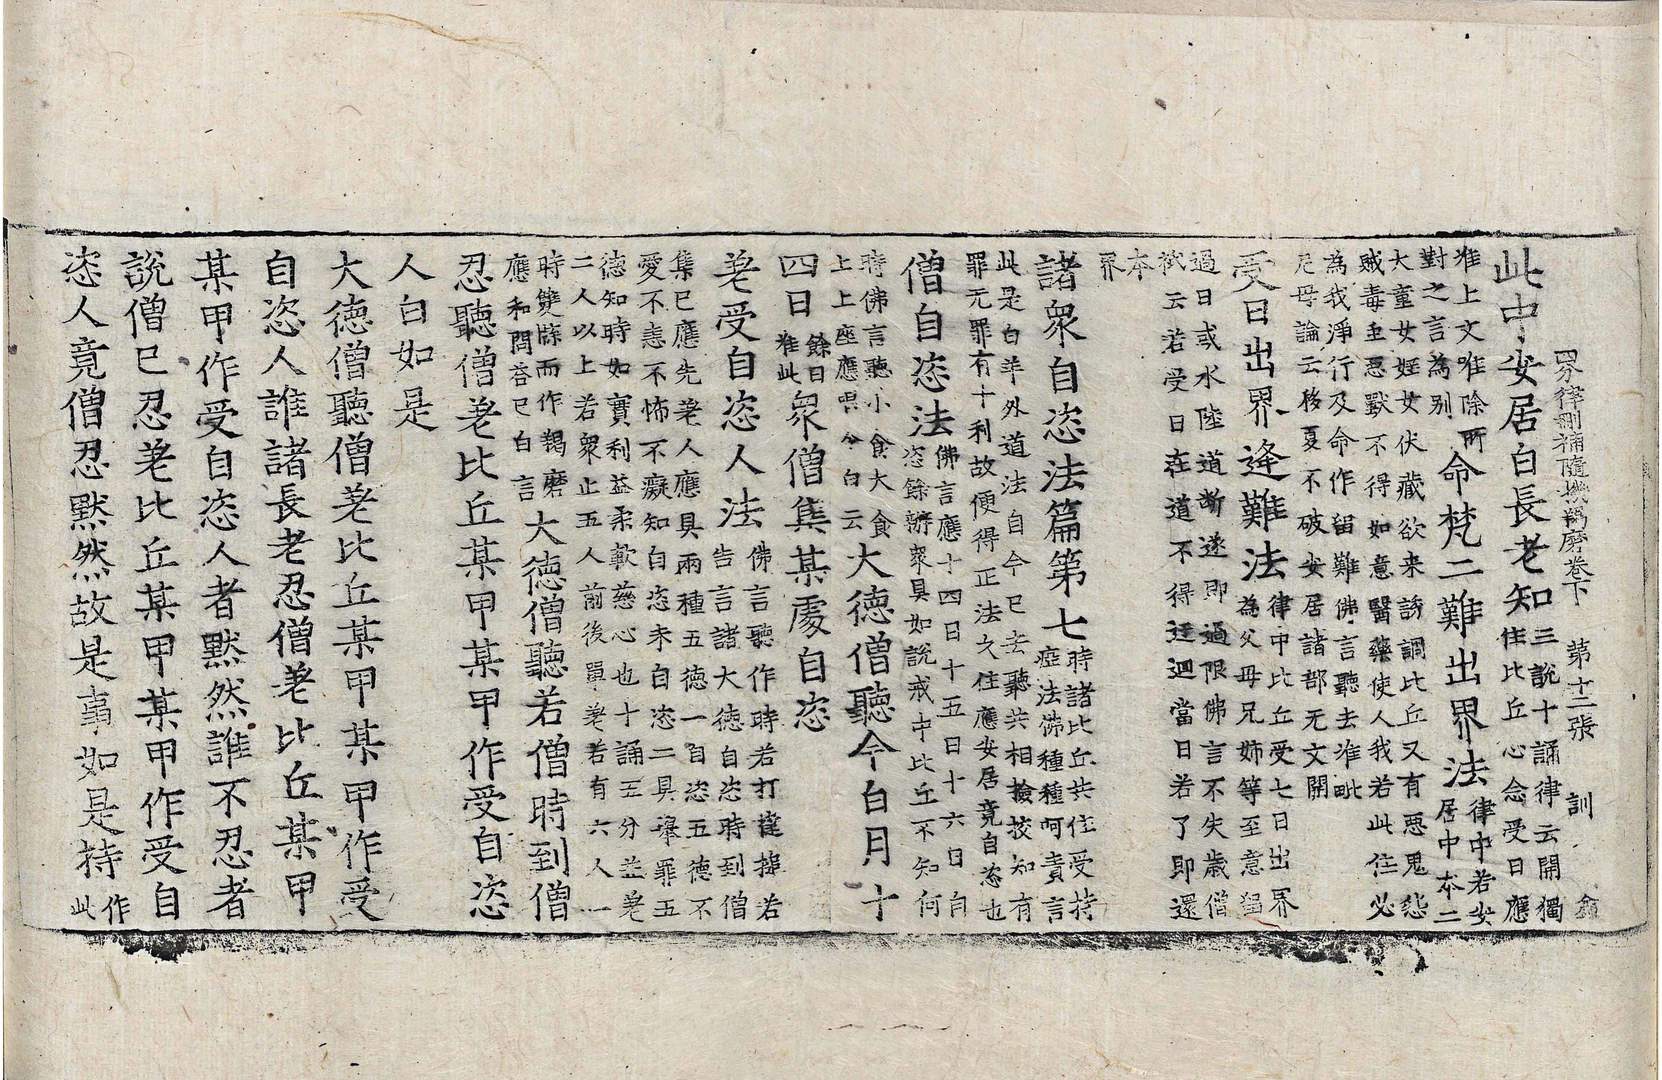 四分律刪補隨機羯磨卷下 第十二張 訓
此中安居白長老知三說十誦律云開獨
住比丘心念受日應
准上文唯除所
對之言為別
命梵二難出界法律中若安
居中本二
大童女婬女伏藏欲来誘調比丘又有惡鬼怨
賊毒虫惡獸不得如意醫藥使人我若此住必
為我淨行及命作留難佛言聽去准毗
尼母論云移夏不破安居諸部无文開
受日出界逄難法律中比丘受七日出界
為父母兄姉等至意留
過日或水陸道断遂即過限佛言不失歲僧
祇云若受日在道不得迂迴當日若了即還
本
界
諸衆自恣法篇第七時諸比丘共住受持
瘂法佛種種呵責言
此是白羊外道法自今已去聽共相撿挍知有
罪无罪有十利故便得正法久住應安居竟自恣也
僧自恣法佛言應十四日十五日十六日自
恣餘辦衆具如說戒中比丘不知何
時佛言聽小食大食
上上座應唱令白云
大德僧聽今白月十
四日餘日
准此
衆僧集某處自恣
差受自恣人法佛言聽作時若打揵搥若
告言諸大德自恣時到僧
集已應先差人應具兩種五德一自恣五德不
愛不恚不怖不癡知自恣未自恣二具舉罪五
德知時如實利益柔軟慈心也十誦五分並差
二人以上若衆止五人前後單差若有六人一
時雙牒而作羯磨
應和問荅已白言
大德僧聽若僧時到僧
忍聽僧差比丘某甲某甲作受自恣
人白如是
大德僧聽僧差比丘某甲某甲作受
自恣人誰諸長老忍僧差比丘某甲
某甲作受自恣人者默然誰不忍者
說僧已忍差比丘某甲某甲作受自
恣人竟僧忍默然故是事如是持作
此